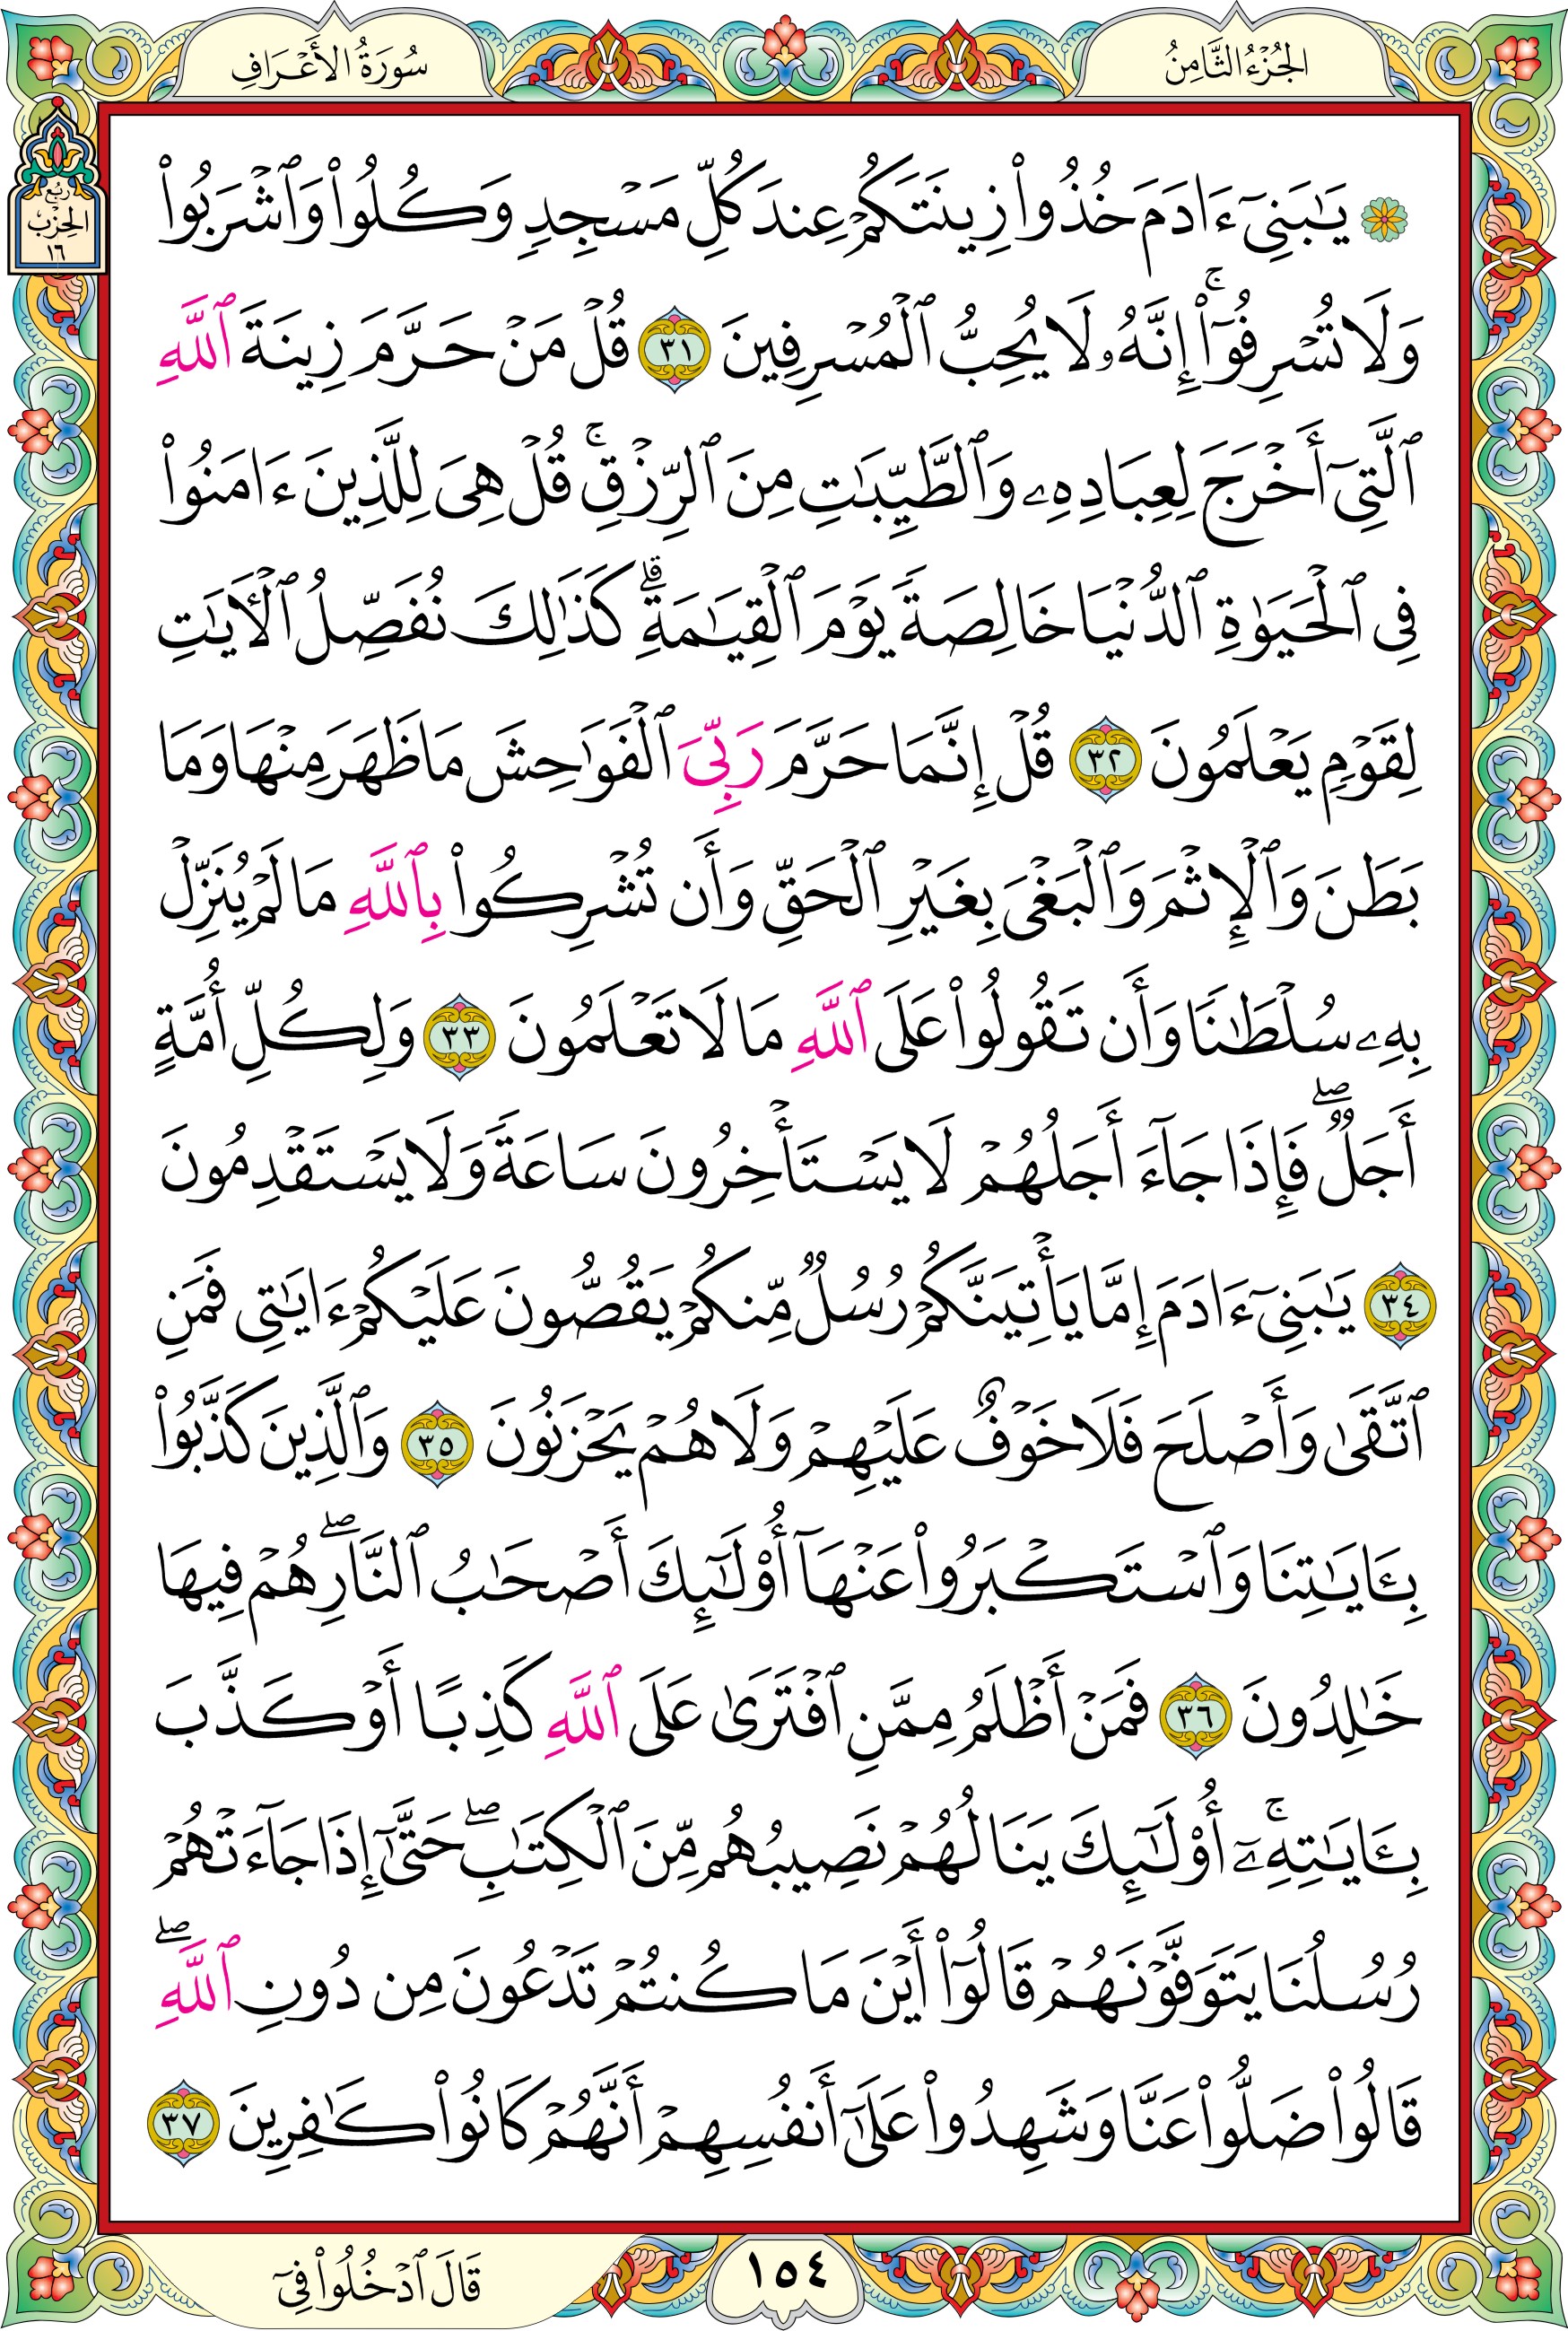 الجُزْءُ الثَّامِنُ
سُورَةُ الأَعْرَافِ
رُبُع
الحِزْبُ
١٦
۞ يَٰبَنِيٓ ءَادَمَ خُذُواْ زِينَتَكُمۡ عِندَ كُلِّ مَسۡجِدٖ وَكُلُواْ وَٱشۡرَبُواْ
وَلَا تُسۡرِفُوٓاْۚ إِنَّهُۥ لَا يُحِبُّ ٱلۡمُسۡرِفِينَ ٣١ قُلۡ مَنۡ حَرَّمَ زِينَةَ ٱللَّهِ
ٱلَّتِيٓ أَخۡرَجَ لِعِبَادِهِۦ وَٱلطَّيِّبَٰتِ مِنَ ٱلرِّزۡقِۚ قُلۡ هِيَ لِلَّذِينَ ءَامَنُواْ
فِي ٱلۡحَيَوٰةِ ٱلدُّنۡيَا خَالِصَةٗ يَوۡمَ ٱلۡقِيَٰمَةِۗ كَذَٰلِكَ نُفَصِّلُ ٱلۡأٓيَٰتِ
لِقَوۡمٖ يَعۡلَمُونَ ٣٢ قُلۡ إِنَّمَا حَرَّمَ رَبِّيَ ٱلۡفَوَٰحِشَ مَا ظَهَرَ مِنۡهَا وَمَا
بَطَنَ وَٱلۡإِثۡمَ وَٱلۡبَغۡيَ بِغَيۡرِ ٱلۡحَقِّ وَأَن تُشۡرِكُواْ بِٱللَّهِ مَا لَمۡ يُنَزِّلۡ
بِهِۦ سُلۡطَٰنٗا وَأَن تَقُولُواْ عَلَى ٱللَّهِ مَا لَا تَعۡلَمُونَ ٣٣ وَلِكُلِّ أُمَّةٍ
أَجَلٞۖ فَإِذَا جَآءَ أَجَلُهُمۡ لَا يَسۡتَأۡخِرُونَ سَاعَةٗ وَلَا يَسۡتَقۡدِمُونَ
٣٤ يَٰبَنِيٓ ءَادَمَ إِمَّا يَأۡتِيَنَّكُمۡ رُسُلٞ مِّنكُمۡ يَقُصُّونَ عَلَيۡكُمۡ ءَايَٰتِي فَمَنِ
ٱتَّقَىٰ وَأَصۡلَحَ فَلَا خَوۡفٌ عَلَيۡهِمۡ وَلَا هُمۡ يَحۡزَنُونَ ٣٥ وَٱلَّذِينَ كَذَّبُواْ
بِـَٔايَٰتِنَا وَٱسۡتَكۡبَرُواْ عَنۡهَآ أُوْلَٰٓئِكَ أَصۡحَٰبُ ٱلنَّارِۖ هُمۡ فِيهَا
خَٰلِدُونَ ٣٦ فَمَنۡ أَظۡلَمُ مِمَّنِ ٱفۡتَرَىٰ عَلَى ٱللَّهِ كَذِبًا أَوۡ كَذَّبَ
بِـَٔايَٰتِهِۦٓۚ أُوْلَٰٓئِكَ يَنَالُهُمۡ نَصِيبُهُم مِّنَ ٱلۡكِتَٰبِۖ حَتَّىٰٓ إِذَا جَآءَتۡهُمۡ
رُسُلُنَا يَتَوَفَّوۡنَهُمۡ قَالُوٓاْ أَيۡنَ مَا كُنتُمۡ تَدۡعُونَ مِن دُونِ ٱللَّهِۖ
قَالُواْ ضَلُّواْ عَنَّا وَشَهِدُواْ عَلَىٰٓ أَنفُسِهِمۡ أَنَّهُمۡ كَانُواْ كَٰفِرِينَ ٣٧
١٥٤
قَالَ ٱدۡخُلُواْ فِيٓ